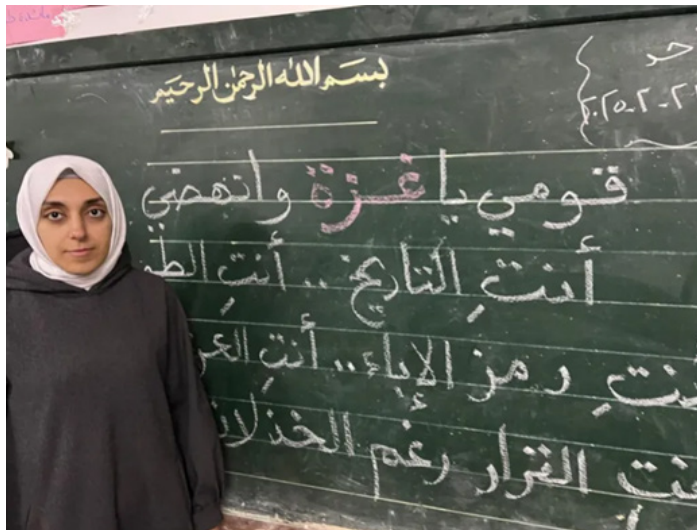 بسم الله الرحمن الرحيم
قومي يا غزة وانهضي
أنتِ التاريخ .. أنتِ
أنتِ رمز الإباء .. أنتِ
القرار رغم الخذلان